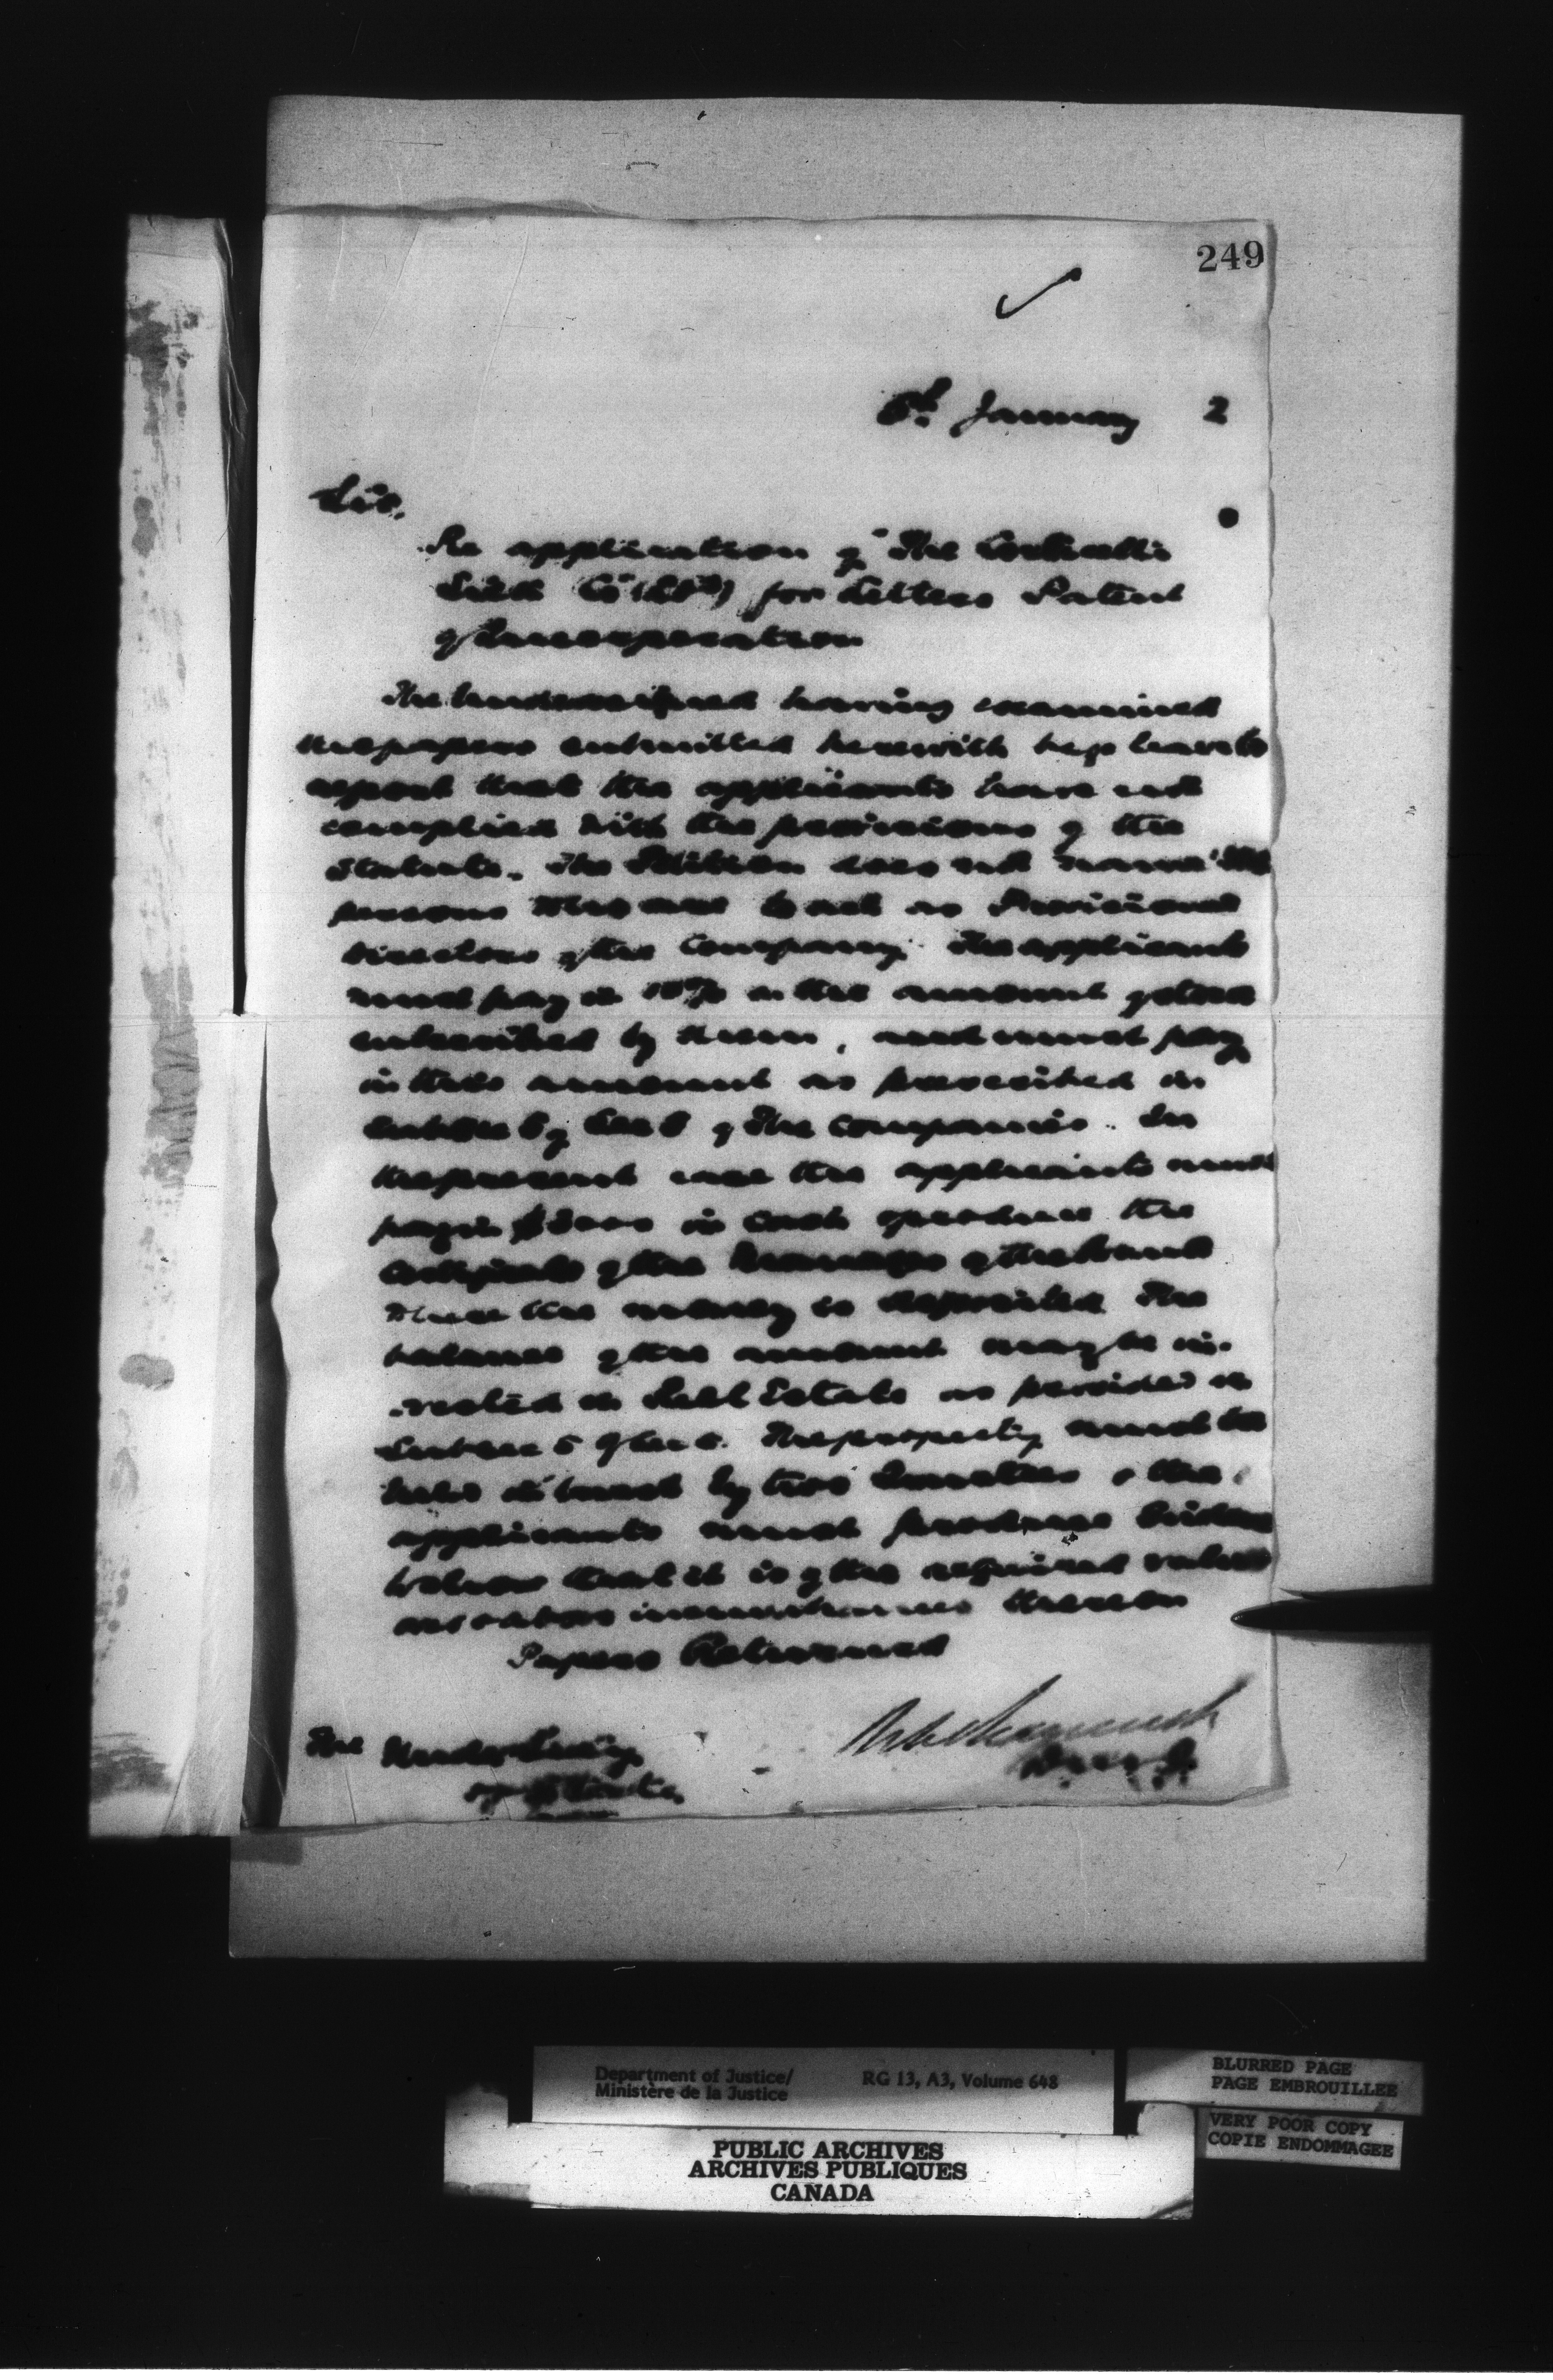 249
6th January 2
Sir,
Re application of "The Corticelli
Silk Co (Ltd)" for Letters Patent
of Incorporation
The Undersigned having examined
the papers submitted herewith begs leave to
report that the applicants have not
complied with the provisions of the
Statute. The Petition does not name the
persons who are to act as Provisional
Directors of the Company. The applicants
must pay in 10% on the amount of stock
subscribed by them, and must pay
in this amount as prescribed in
Subsec 5 of Sec 5 of The Companies. In
the present case the applicants must
pay in $ in cash & produce the
certificate of the Manager of the Bank
where the money is deposited The
balance of the amount may be in-
vested in Real Estate as provided in
Subsec 5 of Sec 5. The property must be
held in trust by two Trustees & the
applicants must produce
that it is of the required value
over & above incumbrances thereon
Papers Returned
The Under Secy
of State
D. M. J.
Department of Justice/
Ministère de la Justice
RG 13, A3, Volume 648
BLURRED PAGE
PAGE EMBROUILLEE
VERY POOR COPY
COPIE ENDOMMAGEE
PUBLIC ARCHIVES
ARCHIVES PUBLIQUES
CANADA